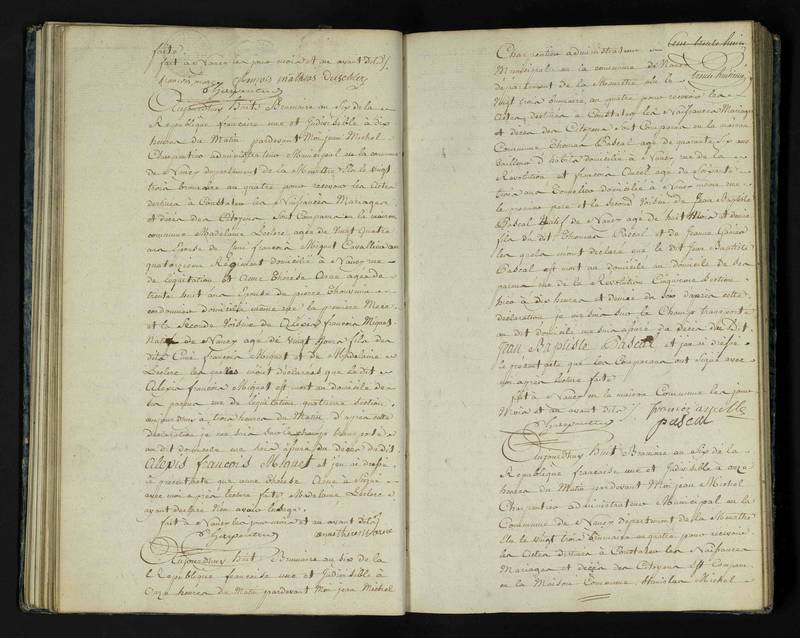 faite
fait à Nancy les jour mois et an avant dits
françois mathias
Charpentier
Aujourdhuy huit Brumaire an Six de la
République française une et Indivisible à dix
heures du Matin pardevant Moi jean Michel
Charpentier administrateur Municipal en la commune
de Nancy département de la Meurthe Elu le vingt
trois brumaire an quatre pour recevoir les Actes
destinés à Constater les Naissances Mariages
et décès des Citoyens Sont Comparus en la maison
commune Madelaine Leclerc agée de Vingt Quatre
ans Epouse de françois Miquet Cavallier au
quatorzième Régiment domicilié à Nancy rue
de légitation et Anne Thérèse agée de
trente huit ans Epouse de pierre
cordonnier domiciliée même rue la première Mere
et la Seconde Voisine de Alexis françois Miquet
Natif de Nancy agé de Vingt jours fils des
dits françois Miquet et de Madelaine
Leclerc les quelles m'ont déclarées que le dit
Alexis francois Miquet est mort au domicile de
ses parens rue de légitation quatrieme Section
aujourdhuy à trois heures du Matin d'après cette
déclaration je me suis sur le champ transporté
au dit domicile me suis assuré du Décès du dit
Alexis francois Miquet et j'en ai dressé
le present acte que anne Thérèse a Signé
avec moi après lecture faite Madelaine Leclerc
ayant declaré Non avoir l'usage
fait à Nancy les jour mois et an avant dits
Charpentier anne therese
Aujourdhuy huit Brumaire an six de la
République française une et Indivisible à
Onze heures du Matin pardevant Moi jean Michel
Charpentier administrateur
Municipale en la commune de Nancy
département de la Meurthe elu le
Vingt trois brumaire an quatre pour recevoir les
actes destinés à Constater les Naissances Mariages
et décès des Citoyens Sont Comparus en la maison
Commune Thomas Pascal age de quarante six ans
domicilié à Nancy rue de la
Révolution et francois age de Soixante
trois ans domicilié à Nancy même rue
le premier pere et le Second Voisin de Jean Baptiste
Pascal Natif de Nancy age de huit Mois et demi
fils du dit Thomas Pascal et de Jeanne
les quels m'ont déclaré que le dit Jean Baptiste
Pascal est mort au domicile de ses
parens rue de la Révolution Cinquieme Section
hier à dix heures et demie du Soir d'après cette
déclaration je me suis sur le Champ transporté
au dit domicile me suis assuré du Décès du dit
Jean Baptiste Pascal et j'en ai dressé
le present acte que les Comparans ont Signé avec
moi après lecture faite
fait à Nancy en la maison Commune les jour
Mois et an avant dits francois
Charpentier pascal
Aujourdhuy huit Brumaire an Six de la
République française une et Indivisible à onze
heures du Matin pardevant Moi jean Michel
Charpentier administrateur Municipal en la
Commune de Nancy département de la Meurthe
Elu le vingt trois Brumaire an quatre pour recevoir
les Actes destinés à Constater les Naissances
Mariages et décès des Citoyens Est Comparu
en la Maison Commune Stanislas Michel